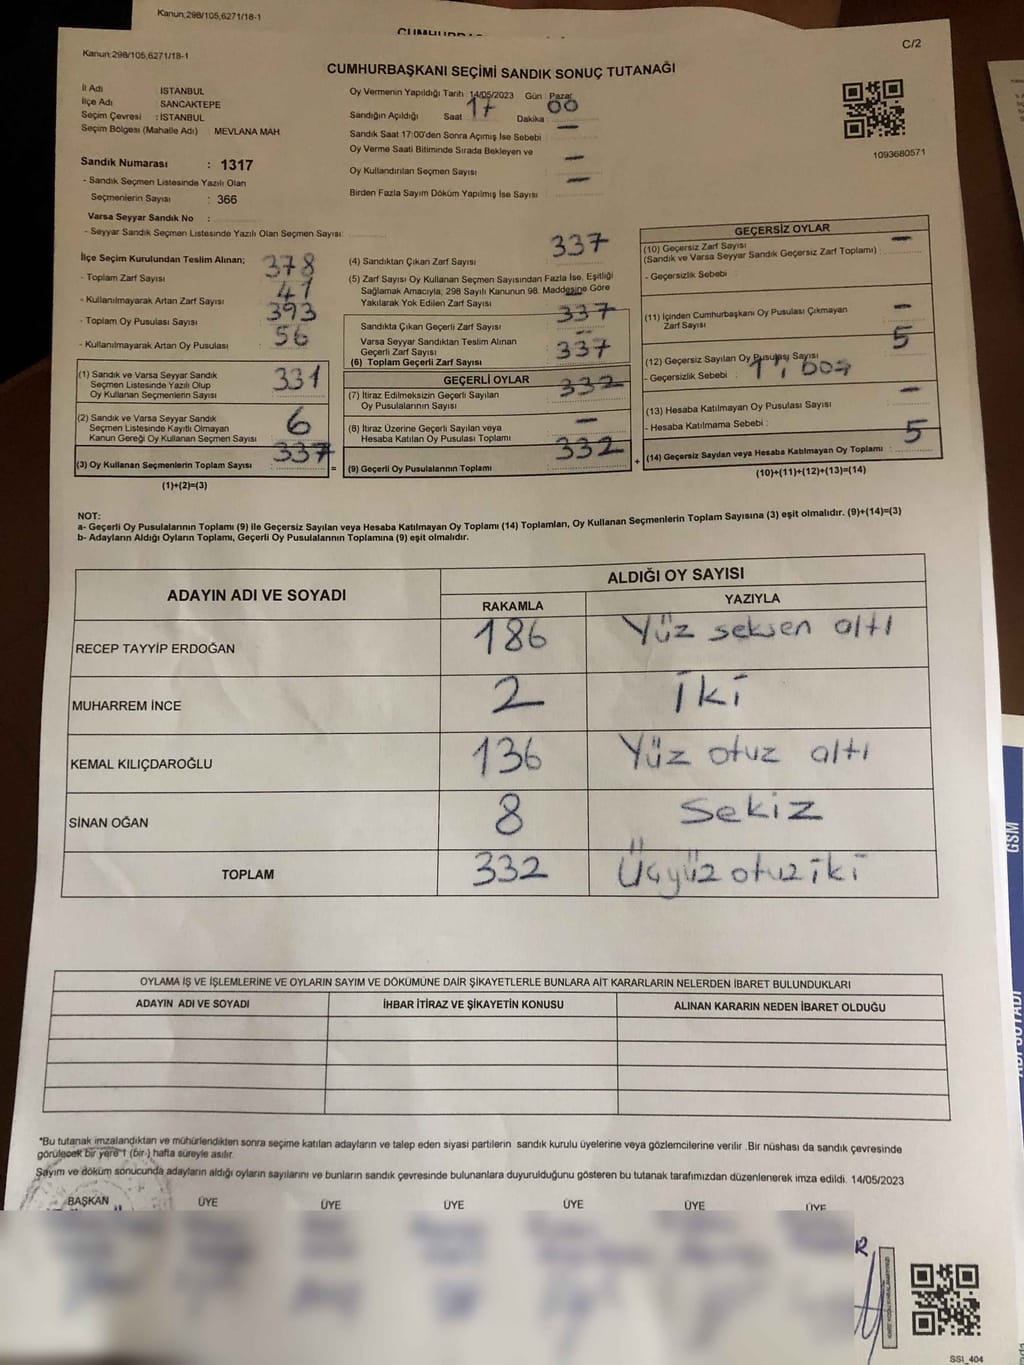 Kanun;298/105,6271/18-1
Kanun:298/105,6271/18-1
C/2
CUMHURBAŞKANI SEÇİMİ SANDIK SONUÇ TUTANAĞI
İl Adı : İSTANBUL
İlçe Adı : SANCAKTEPE
Seçim Çevresi : İSTANBUL
Seçim Bölgesi (Mahalle Adı) MEVLANA MAH
Sandık Numarası : 1317
- Sandık Seçmen Listesinde Yazılı Olan
Seçmenlerin Sayısı : 366
Varsa Seyyar Sandık No :
- Seyyar Sandık Seçmen Listesinde Yazılı Olan Seçmen Sayısı:
Oy Vermenin Yapıldığı Tarih 14/05/2023 Gün : Pazar
Sandığın Açıldığı Saat 17 Dakika : 00
Sandık Saat 17:00'den Sonra Açımış İse Sebebi —
Oy Verme Saati Bitiminde Sırada Bekleyen ve
Oy Kullandırılan Seçmen Sayısı —
Birden Fazla Sayım Döküm Yapılmış İse Sayısı —
1093680571
İlçe Seçim Kurulundan Teslim Alınan;
- Toplam Zarf Sayısı : 378
- Kullanılmayarak Artan Zarf Sayısı : 41
- Toplam Oy Pusulası Sayısı : 393
- Kullanılmayarak Artan Oy Pusulası : 56
(1) Sandık ve Varsa Seyyar Sandık
Seçmen Listesinde Yazılı Olup
Oy Kullanan Seçmenlerin Sayısı 331
(2) Sandık ve Varsa Seyyar Sandık
Seçmen Listesinde Kayıtlı Olmayan
Kanun Gereği Oy Kullanan Seçmen Sayısı 6
(3) Oy Kullanan Seçmenlerin Toplam Sayısı 337
(1)+(2)=(3)
=
(4) Sandıktan Çıkan Zarf Sayısı 337
(5) Zarf Sayısı Oy Kullanan Seçmen Sayısından Fazla İse, Eşitliği
Sağlamak Amacıyla, 298 Sayılı Kanunun 98. Maddesine Göre
Yakılarak Yok Edilen Zarf Sayısı —
Sandıkta Çıkan Geçerli Zarf Sayısı 337
Varsa Seyyar Sandıktan Teslim Alınan
Geçerli Zarf Sayısı —
(6) Toplam Geçerli Zarf Sayısı 337
GEÇERLİ OYLAR
(7) İtiraz Edilmeksizin Geçerli Sayılan
Oy Pusulalarının Sayısı 332
(8) İtiraz Üzerine Geçerli Sayılan veya
Hesaba Katılan Oy Pusulası Toplamı —
(9) Geçerli Oy Pusulalarının Toplamı 332
+
GEÇERSİZ OYLAR
(10) Geçersiz Zarf Sayısı —
(Sandık ve Varsa Seyyar Sandık Geçersiz Zarf Toplamı) :
- Geçersizlik Sebebi :
(11) İçinden Cumhurbaşkanı Oy Pusulası Çıkmayan
Zarf Sayısı —
(12) Geçersiz Sayılan Oy Pusulası Sayısı 5
- Geçersizlik Sebebi :
(13) Hesaba Katılmayan Oy Pusulası Sayısı —
- Hesaba Katılmama Sebebi :
(14) Geçersiz Sayılan veya Hesaba Katılmayan Oy Toplamı : 5
(10)+(11)+(12)+(13)=(14)
NOT:
a- Geçerli Oy Pusulalarının Toplamı (9) ile Geçersiz Sayılan veya Hesaba Katılmayan Oy Toplamı (14) Toplamları, Oy Kullanan Seçmenlerin Toplam Sayısına (3) eşit olmalıdır. (9)+(14)=(3)
b- Adayların Aldığı Oyların Toplamı, Geçerli Oy Pusulalarının Toplamına (9) eşit olmalıdır.
ADAYIN ADI VE SOYADI
ALDIĞI OY SAYISI
RAKAMLA YAZIYLA
RECEP TAYYİP ERDOĞAN 186 Yüz seksen altı
MUHARREM İNCE 2 İki
KEMAL KILIÇDAROĞLU 136 Yüz otuz altı
SİNAN OĞAN 8 Sekiz
TOPLAM 332 Üçyüz otuz iki
OYLAMA İŞ VE İŞLEMLERİNE VE OYLARIN SAYIM VE DÖKÜMÜNE DAİR ŞİKAYETLERLE BUNLARA AİT KARARLARIN NELERDEN İBARET BULUNDUKLARI
ADAYIN ADI VE SOYADI İHBAR İTİRAZ VE ŞİKAYETİN KONUSU ALINAN KARARIN NEDEN İBARET OLDUĞU
*Bu tutanak imzalandıktan ve mühürlendikten sonra seçime katılan adayların ve talep eden siyasi partilerin sandık kurulu üyelerine veya gözlemcilerine verilir .Bir nüshası da sandık çevresinde
görülecek bir yere 1 (bir ) hafta süreyle asılır.
Sayım ve döküm sonucunda adayların aldığı oyların sayılarını ve bunların sandık çevresinde bulunanlara duyurulduğunu gösteren bu tutanak tarafımızdan düzenlenerek imza edildi. 14/05/2023
BAŞKAN ÜYE ÜYE ÜYE ÜYE ÜYE ÜYE
SSI_404
GSM